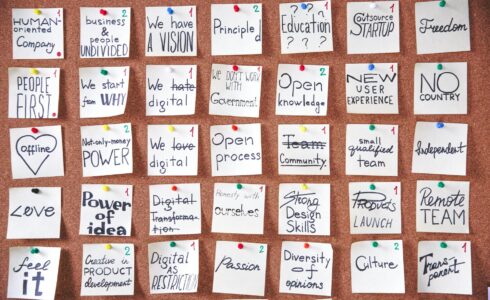 HUMAN-
oriented
Company
1
business
&
people
UNDIVIDED
2
We have
A VISION
1
Principled
2
Education
? ? ?
? ?
2
outsource
STARTUP
1
Freedom
PEOPLE
FIRST
1
We start
from WHY
2
We hate
digital
1
We don't work
with
Government
Open
knowledge
2
NEW
USER
EXPERIENCE
2
NO
COUNTRY
1
Offline
1
Not-only-money
POWER
2
We love
digital
1
Open
process
2
Team
Community
1
small
qualified
team
2
Independent
1
Love
Power
of
idea
1
Digital
Transforma-
tion
Honesty with
ourselves
1
Strong
Design
Skills
1
Products
LAUNCH
1
Remote
TEAM
1
feel
IT
2
Creative in
PRODUCT
development
2
Digital
AS
RESTRICTION
1
Passion
2
Diversity
of
opinions
2
Culture
2
Trans-
parent
1